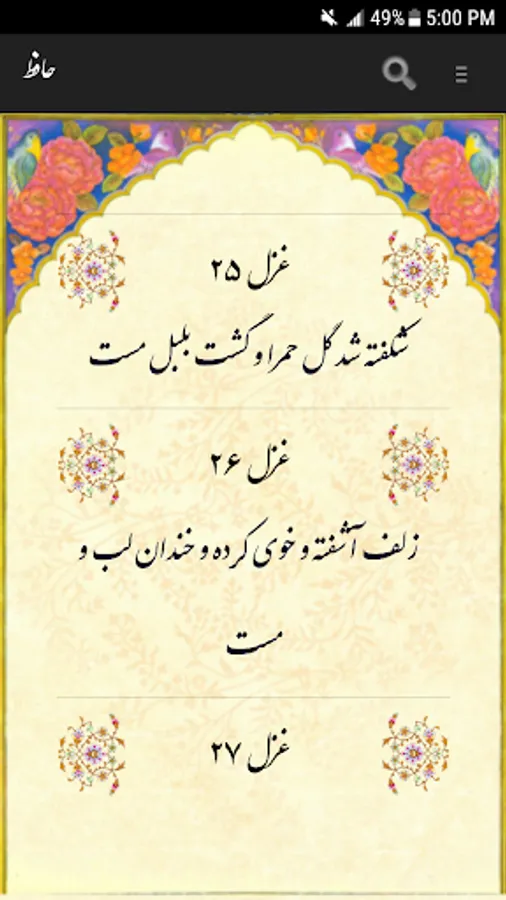 49% 5:00 PM
حافظ
غزل ۲۵
شکفته شد گل حمرا و گشت بلبل مست
غزل ۲۶
زلف آشفته و خوی کرده و خندان لب و
مست
غزل ۲۷